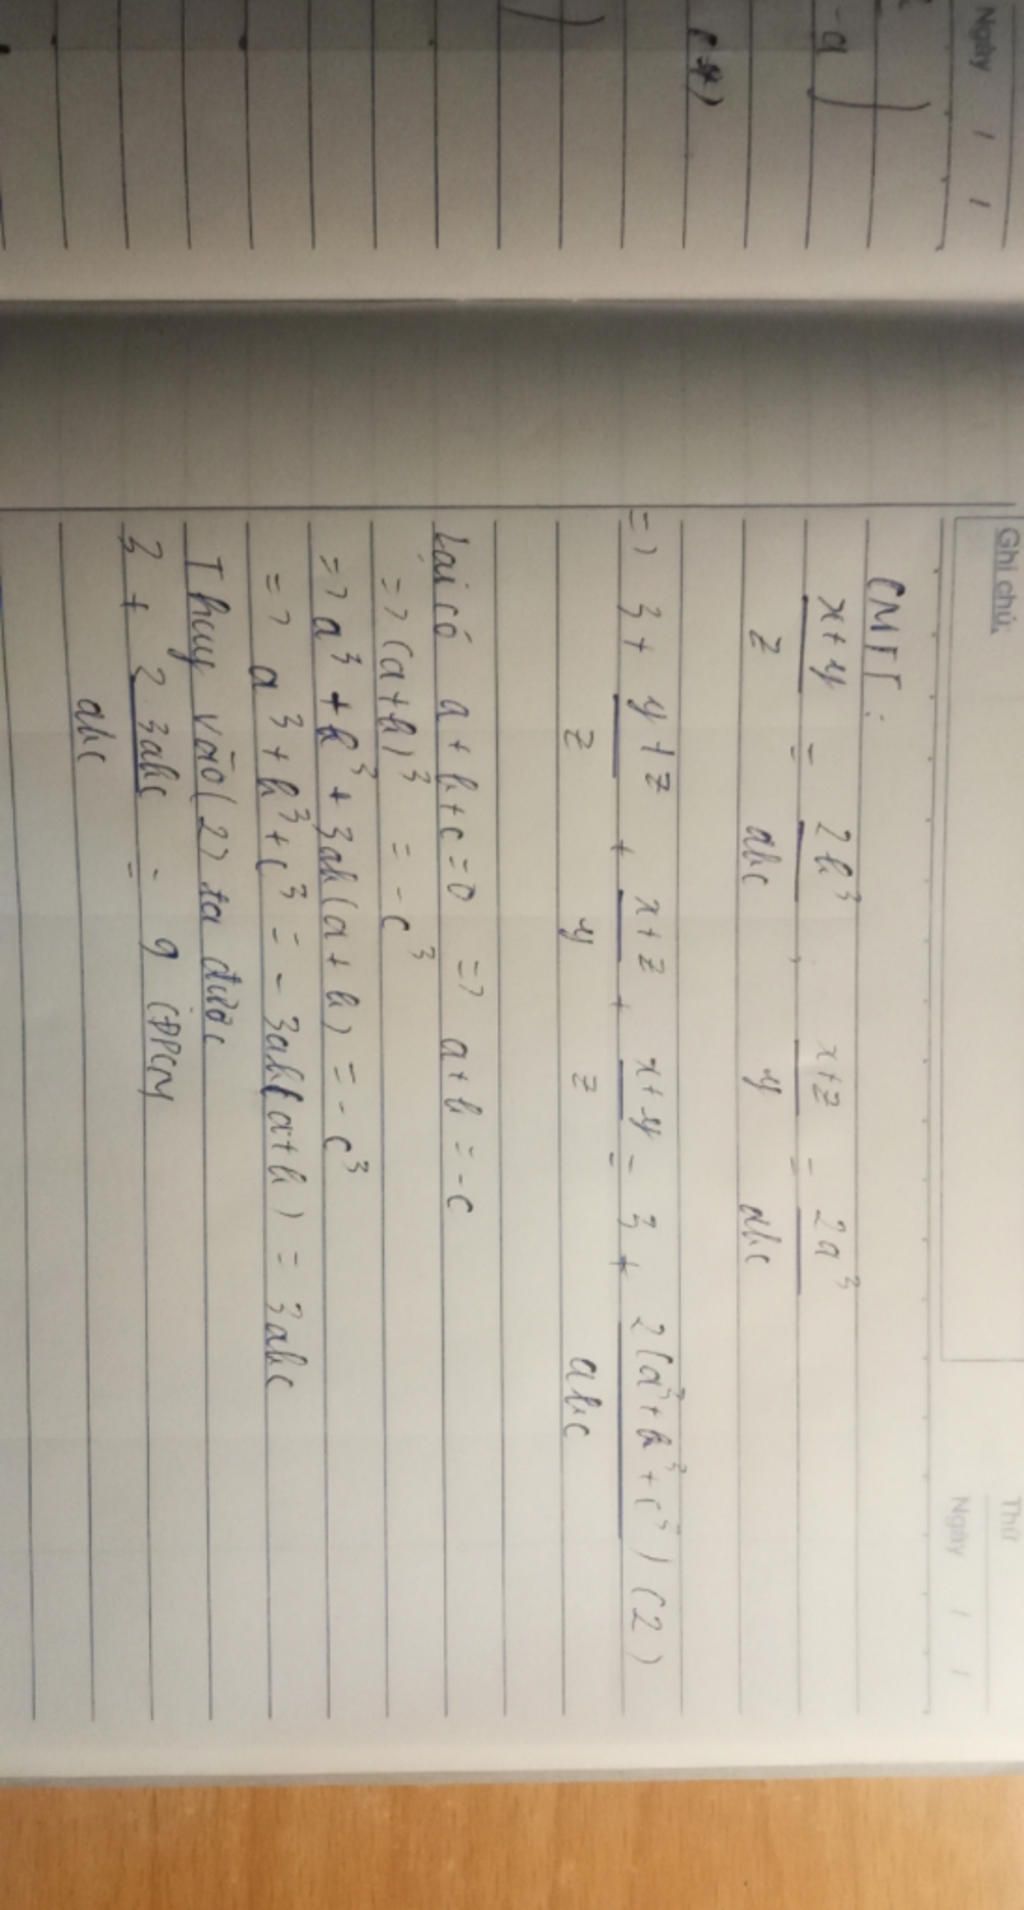 Ngày / /
-a
(*)
Ghi chú:
Thứ
Ngày / /
CMTT:
x+y = 2b³ , x+z = 2a³
z abc y abc
=> 3 + y+z + x+z + x+y = 3 + 2(a³+b³+c³) (2)
z y z abc
Lại có a+b+c=0 => a+b=-c
=> (a+b)³ = -c³
=> a³+b³+3ab(a+b) = -c³
=> a³+b³+c³ = -3ab(a+b) = 3abc
Thay vào (2) ta được
3 + 2.3abc = 9 (ĐPCM
abc